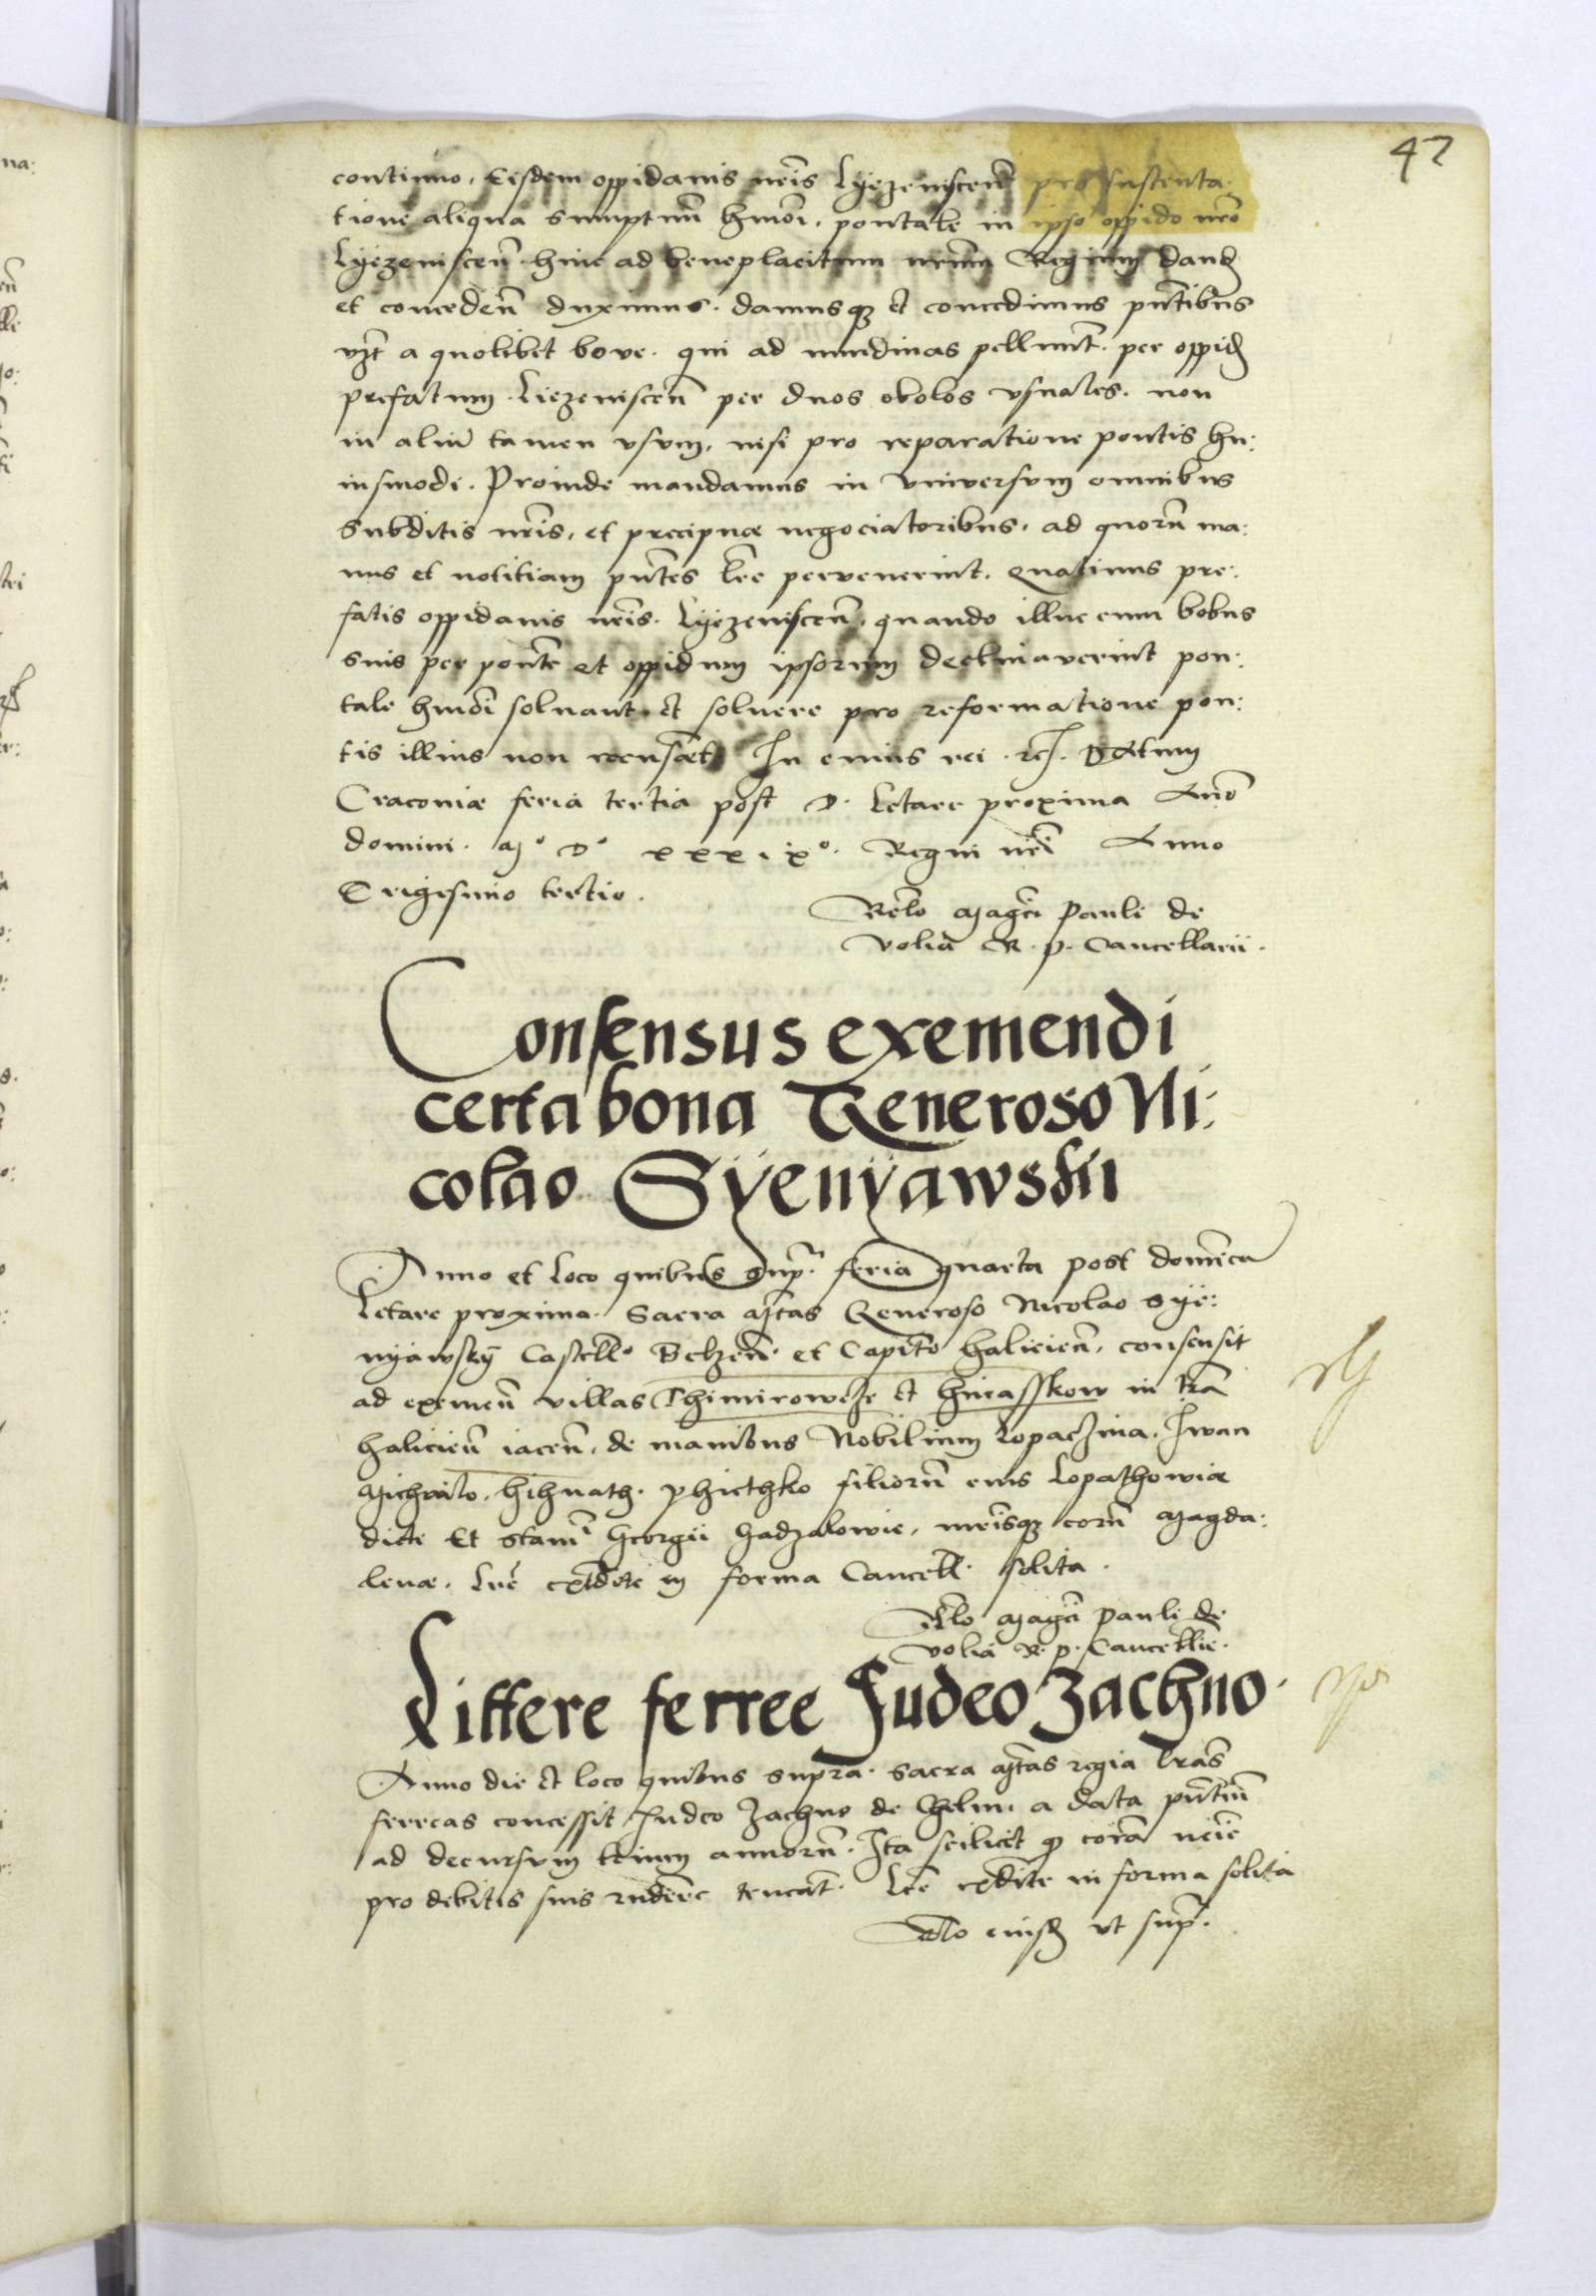 47
continuo, Eisdem oppidanis nris Lyezeniscen̄ pro sustenta:
tione aliqua sumptuū hmōi, pontale in ipso oppido nrō
Lyezeniscen̄ hinc ad beneplacitum nrūm Regium dand
et conceden̄ duximus. damusqꝫ et concedimus pn̄tibus
vꝫt a quolibet bove. qui ad nundinas pellunt. per oppid
prefatum Liezeniscen̄ per duos obolos vsuales. non
in aliū tamen vsum, nisi pro reparatione pontis hu:
iusmodi. Proinde mandamus in vniversum omnibus
Subditis nrīs, et precipuæ negociatoribus, ad quorū ma:
nus et notitiam pn̄tes lrē pervenerint. Quatinus pre:
fatis oppidanis nrīs Lyezeniscen̄, quando illuc cum bobus
suis per pontē et oppidum ipsorum declinaverint pon:
tale hmōi solvant et solvere pro reformatione pon:
tis illius non recusēt In cuius rei. rcͣ. Datum
Cracoviæ feria tertia post D. Letare proxima Anō
domini. Mº Dº xxxixº. Regni nrī Anno
Trigesimo tertio.
Relō Magcī Pauli de
Volia R. P. Cancellarii.
Consensus exemendi
certa bona Generoso Ni:
colao Syenyawskii
Anno et loco quibus supͣ. feria quarta post domīca
Letare proxima. Sacra Mtas Generoso Nicolao Sye:
nyawsky Castell. Belzen̄. et Capitō halicien̄, consensit
ad exemen̄ villas Thimirowcze et hnrasskow in trā
halicien̄ iacen̄, de manibus Nobilium Lopaczina, Iwan
Michailo, hihnath. Phicthko filiorū eius Lopathowiæ
dicti Et Stanī Georgii hadzalowie, nrīsqꝫ eorū Magda:
lenæ. Lrē extdite in forma Cancell. solita.
Relō Magcī Pauli de
Volia R. P. Cancellrīi.
Littere ferree Iudeo Zachno.
Anno die et loco quibus supra. Sacra Mtas regia lrās
ferreas concessit Iudeo Zachno de Chelm. a data pn̄tiū
ad decursum trium annorū. Ita scilicet ꝙ corā nēie
pro debitis suis rn̄dere teneāt. Lrē extdite in forma solita
Relō eiusd̄ vt supͣ.